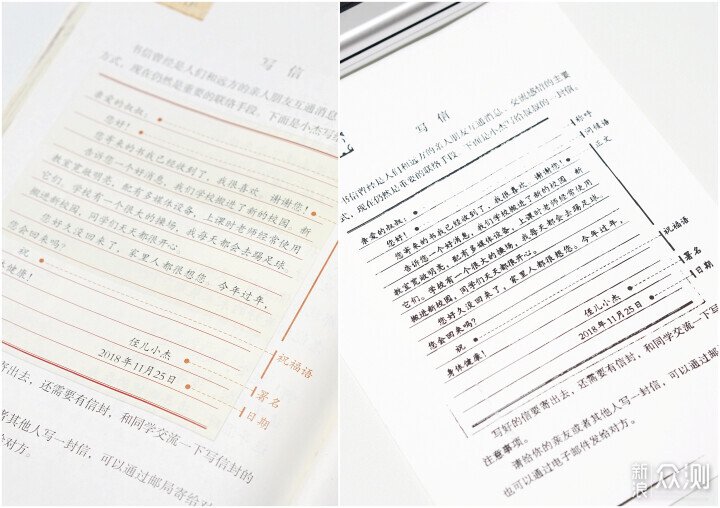 写信
书信曾经是人们和远方的亲人朋友互通消息
方式，现在仍然是重要的联络手段。下面是小杰写
亲爱的叔叔：
您好！
您寄来的书我已经收到了，我很喜欢，谢谢您！
告诉您一个好消息，我们学校搬进了新的校园。新
教室宽敞明亮，配有多媒体设备，上课时老师经常使用
它们。学校有一个很大的操场，我每天都会去踢足球。
搬进新校园，同学们天天都很开心。
您好久没回来了，家里人都很想您。今年过年，
您会回来吗？
祝
体健康！
侄儿小杰
2018年11月25日
祝福语
署名
日期
寄出去，还需要有信封，和同学交流一下写信封的
者其他人写一封信，可以通过邮局寄给对
给对方。
写信
书信曾经是人们和远方的亲人朋友互通消息、交流感情的主要
式，现在仍然是重要的联络手段。下面是小杰写给叔叔的一封信。
称呼
问候语
正文
亲爱的叔叔：
您好！
您寄来的书我已经收到了，我很喜欢，谢谢您！
告诉您一个好消息，我们学校搬进了新的校园。新
教室宽敞明亮，配有多媒体设备，上课时老师经常使用
它们。学校有一个很大的操场，我每天都会去踢足球。
搬进新校园，同学们天天都很开心。
您好久没回来了，家里人都很想您。今年过年，
您会回来吗？
祝
身体健康！
侄儿小杰
2018年11月25日
祝福语
署名
日期
写好的信要寄出去，还需要有信封，和同学交流一下写
注意事项。
请给你的亲友或者其他人写一封信，可以通过邮
也可以通过电子邮件发给对方。
新浪众测